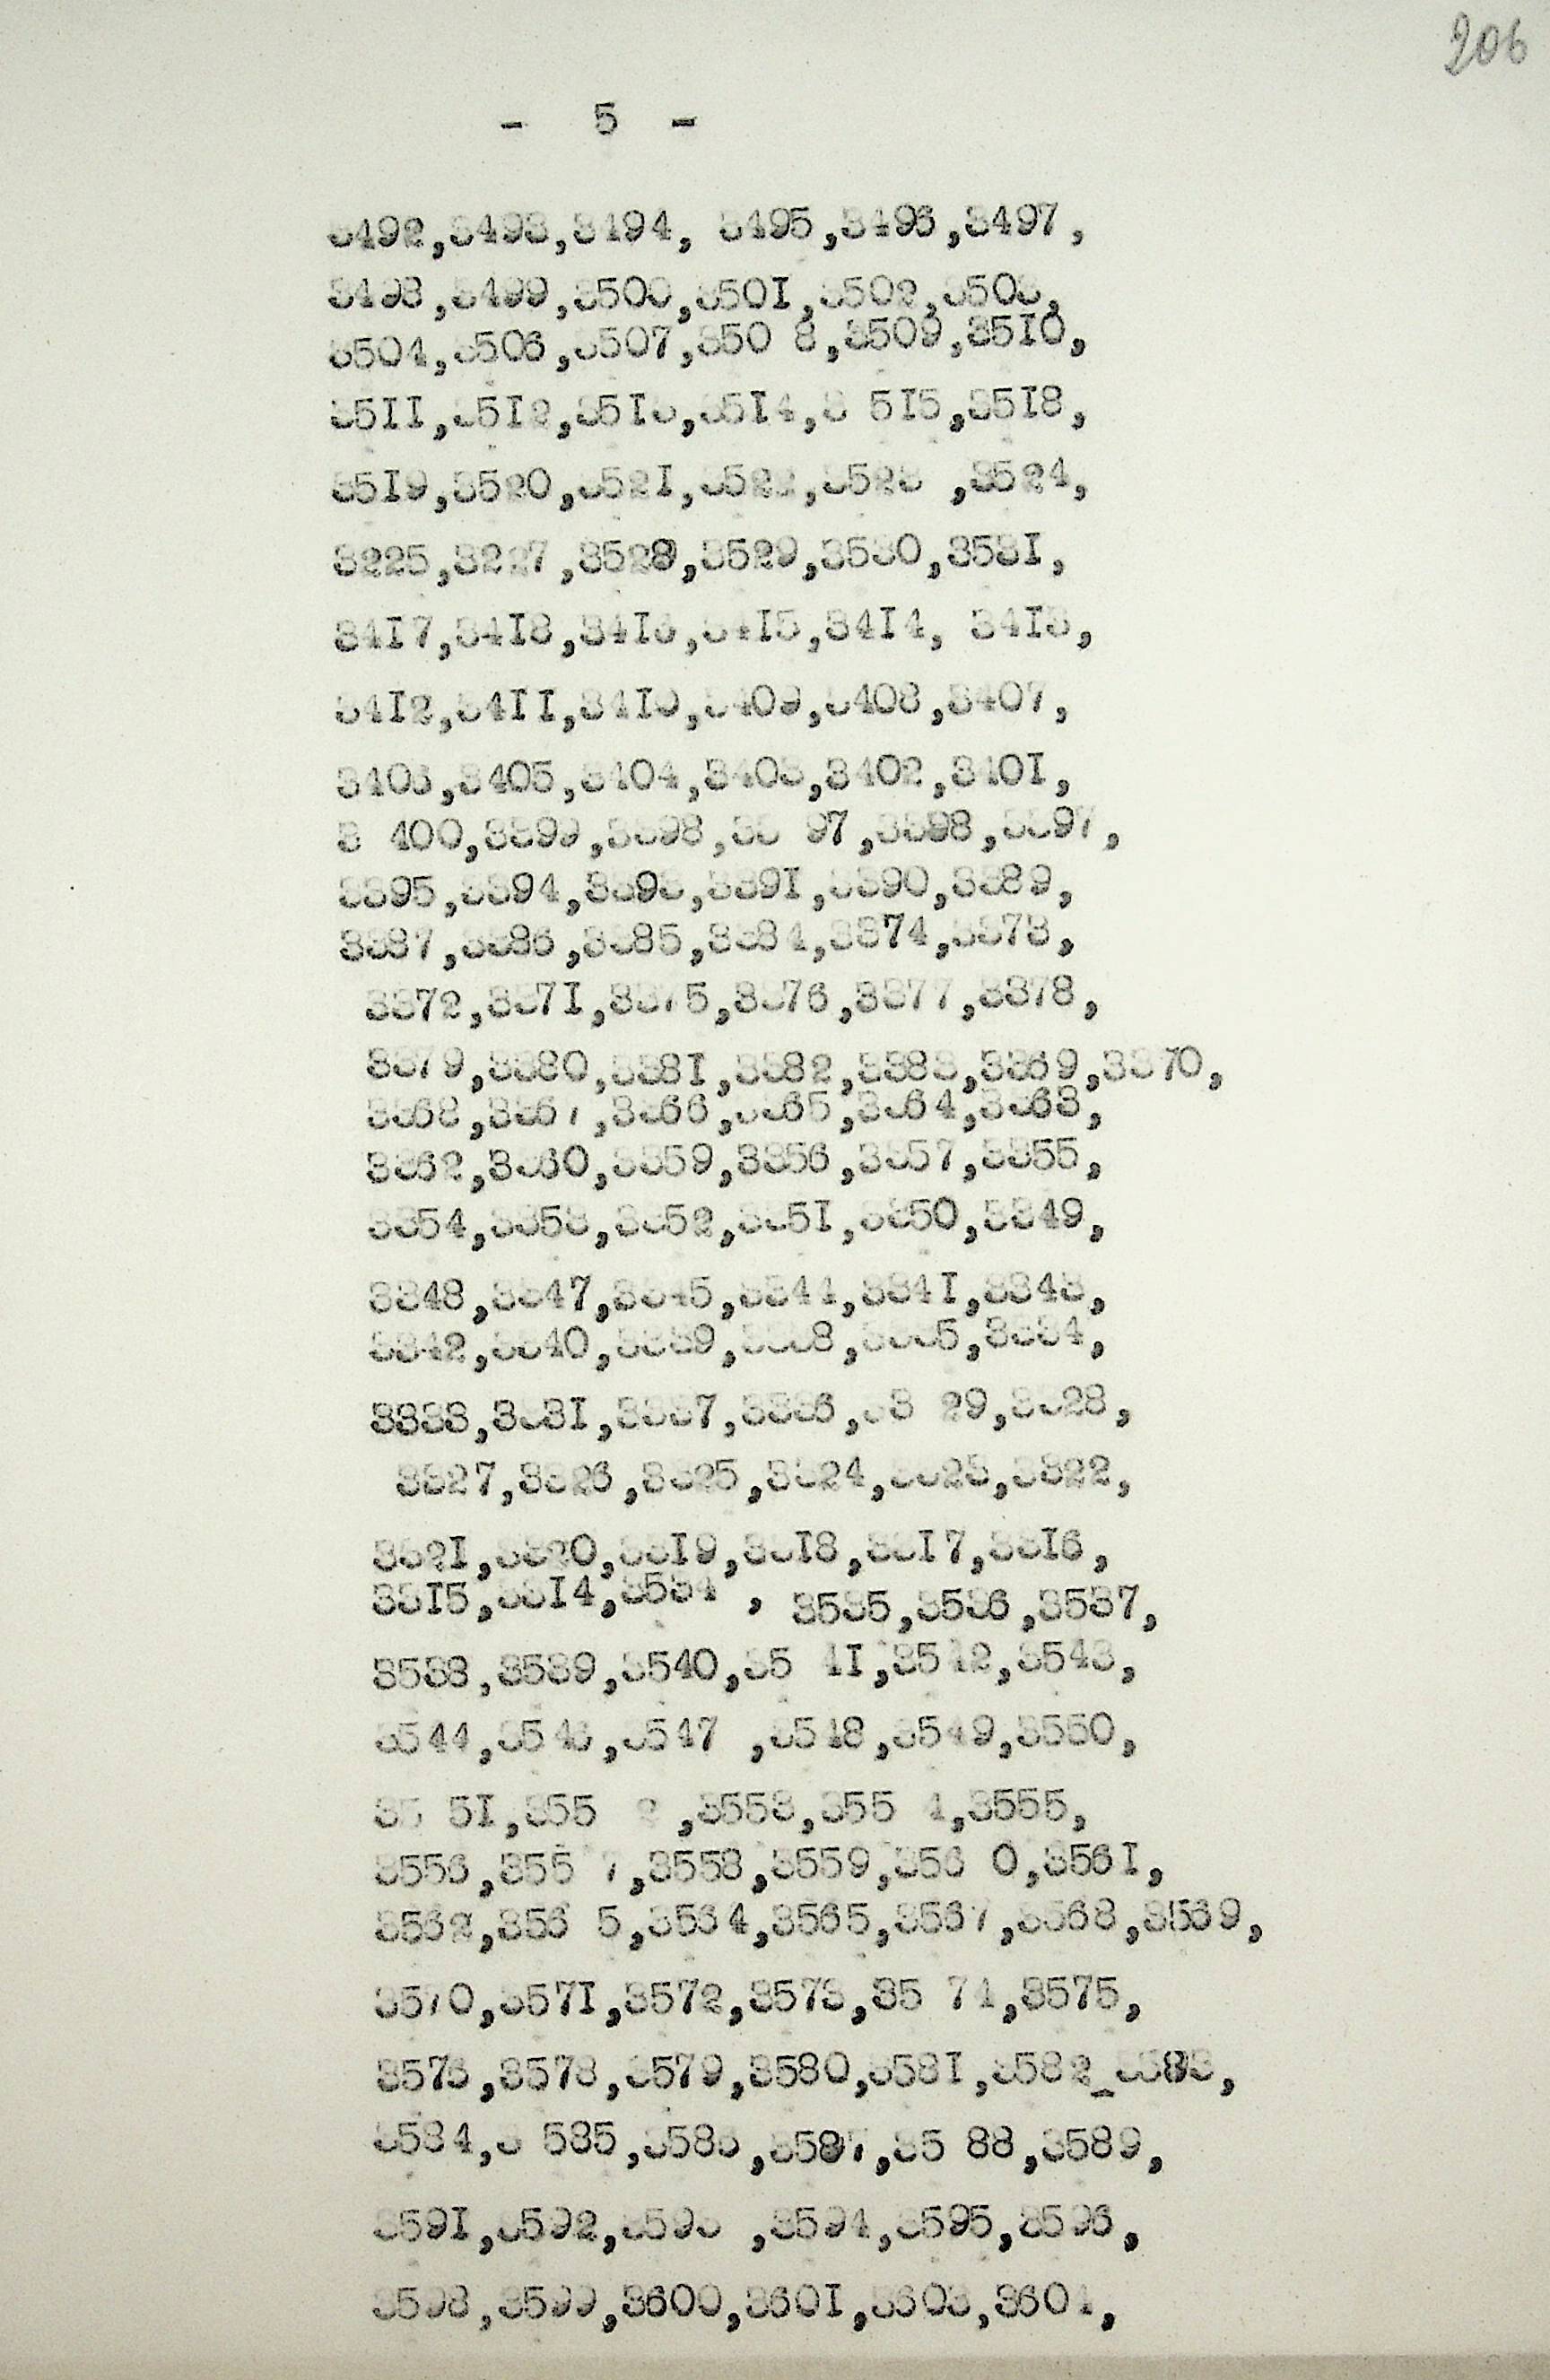 206
- 5 -
3492,3493,3494, 3495,3496,3497,
3498,3499,3500,3501,3502,3503,
3504,3506,3507,350 8,3509,3510,
3511,3512,3513,3514,3 515,3518,
3519,3520,3521,3522,3523 ,3524,
3225,3227,3528,3529,3530,3531,
3417,3418,3416,3415,3414, 3413,
3412,3411,3410,3409,3408,3407,
3406,3405,3404,3403,3402,3401,
3 400,3399,3398,33 97,3398,3397,
3395,3394,3393,3391,3390,3389,
3387,3386,3385,3384,3374,3373,
3372,3371,3375,3376,3377,3378,
3379,3380,3381,3382,3383,3369,3370,
3368,3367,3366,3365,3364,3363,
3362,3360,3359,3356,3357,3355,
3354,3353,3352,3351,3350,3349,
3348,3347,3345,3344,3341,3343,
3342,3340,3339,3338,3335,3334,
3333,3331,3337,3336,33 29,3328,
3327,3326,3325,3324,3323,3322,
3321,3320,3319,3318,3317,3316,
3315,3314,3534 , 3535,3536,3537,
3538,3539,3540,35 41,3542,3543,
3544,3546,3547 ,3548,3549,3550,
35 51,355 2 ,3553,355 4,3555,
3556,355 7,3558,3559,356 0,3561,
3562,356 5,3564,3565,3567,3568,3569,
3570,3571,3572,3573,35 74,3575,
3576,3578,3579,3580,3581,3582_3583,
3584,3 585,3586,3587,35 88,3589,
3591,3592,3593 ,3594,3595,3596,
3598,3599,3600,3601,3603,3604,